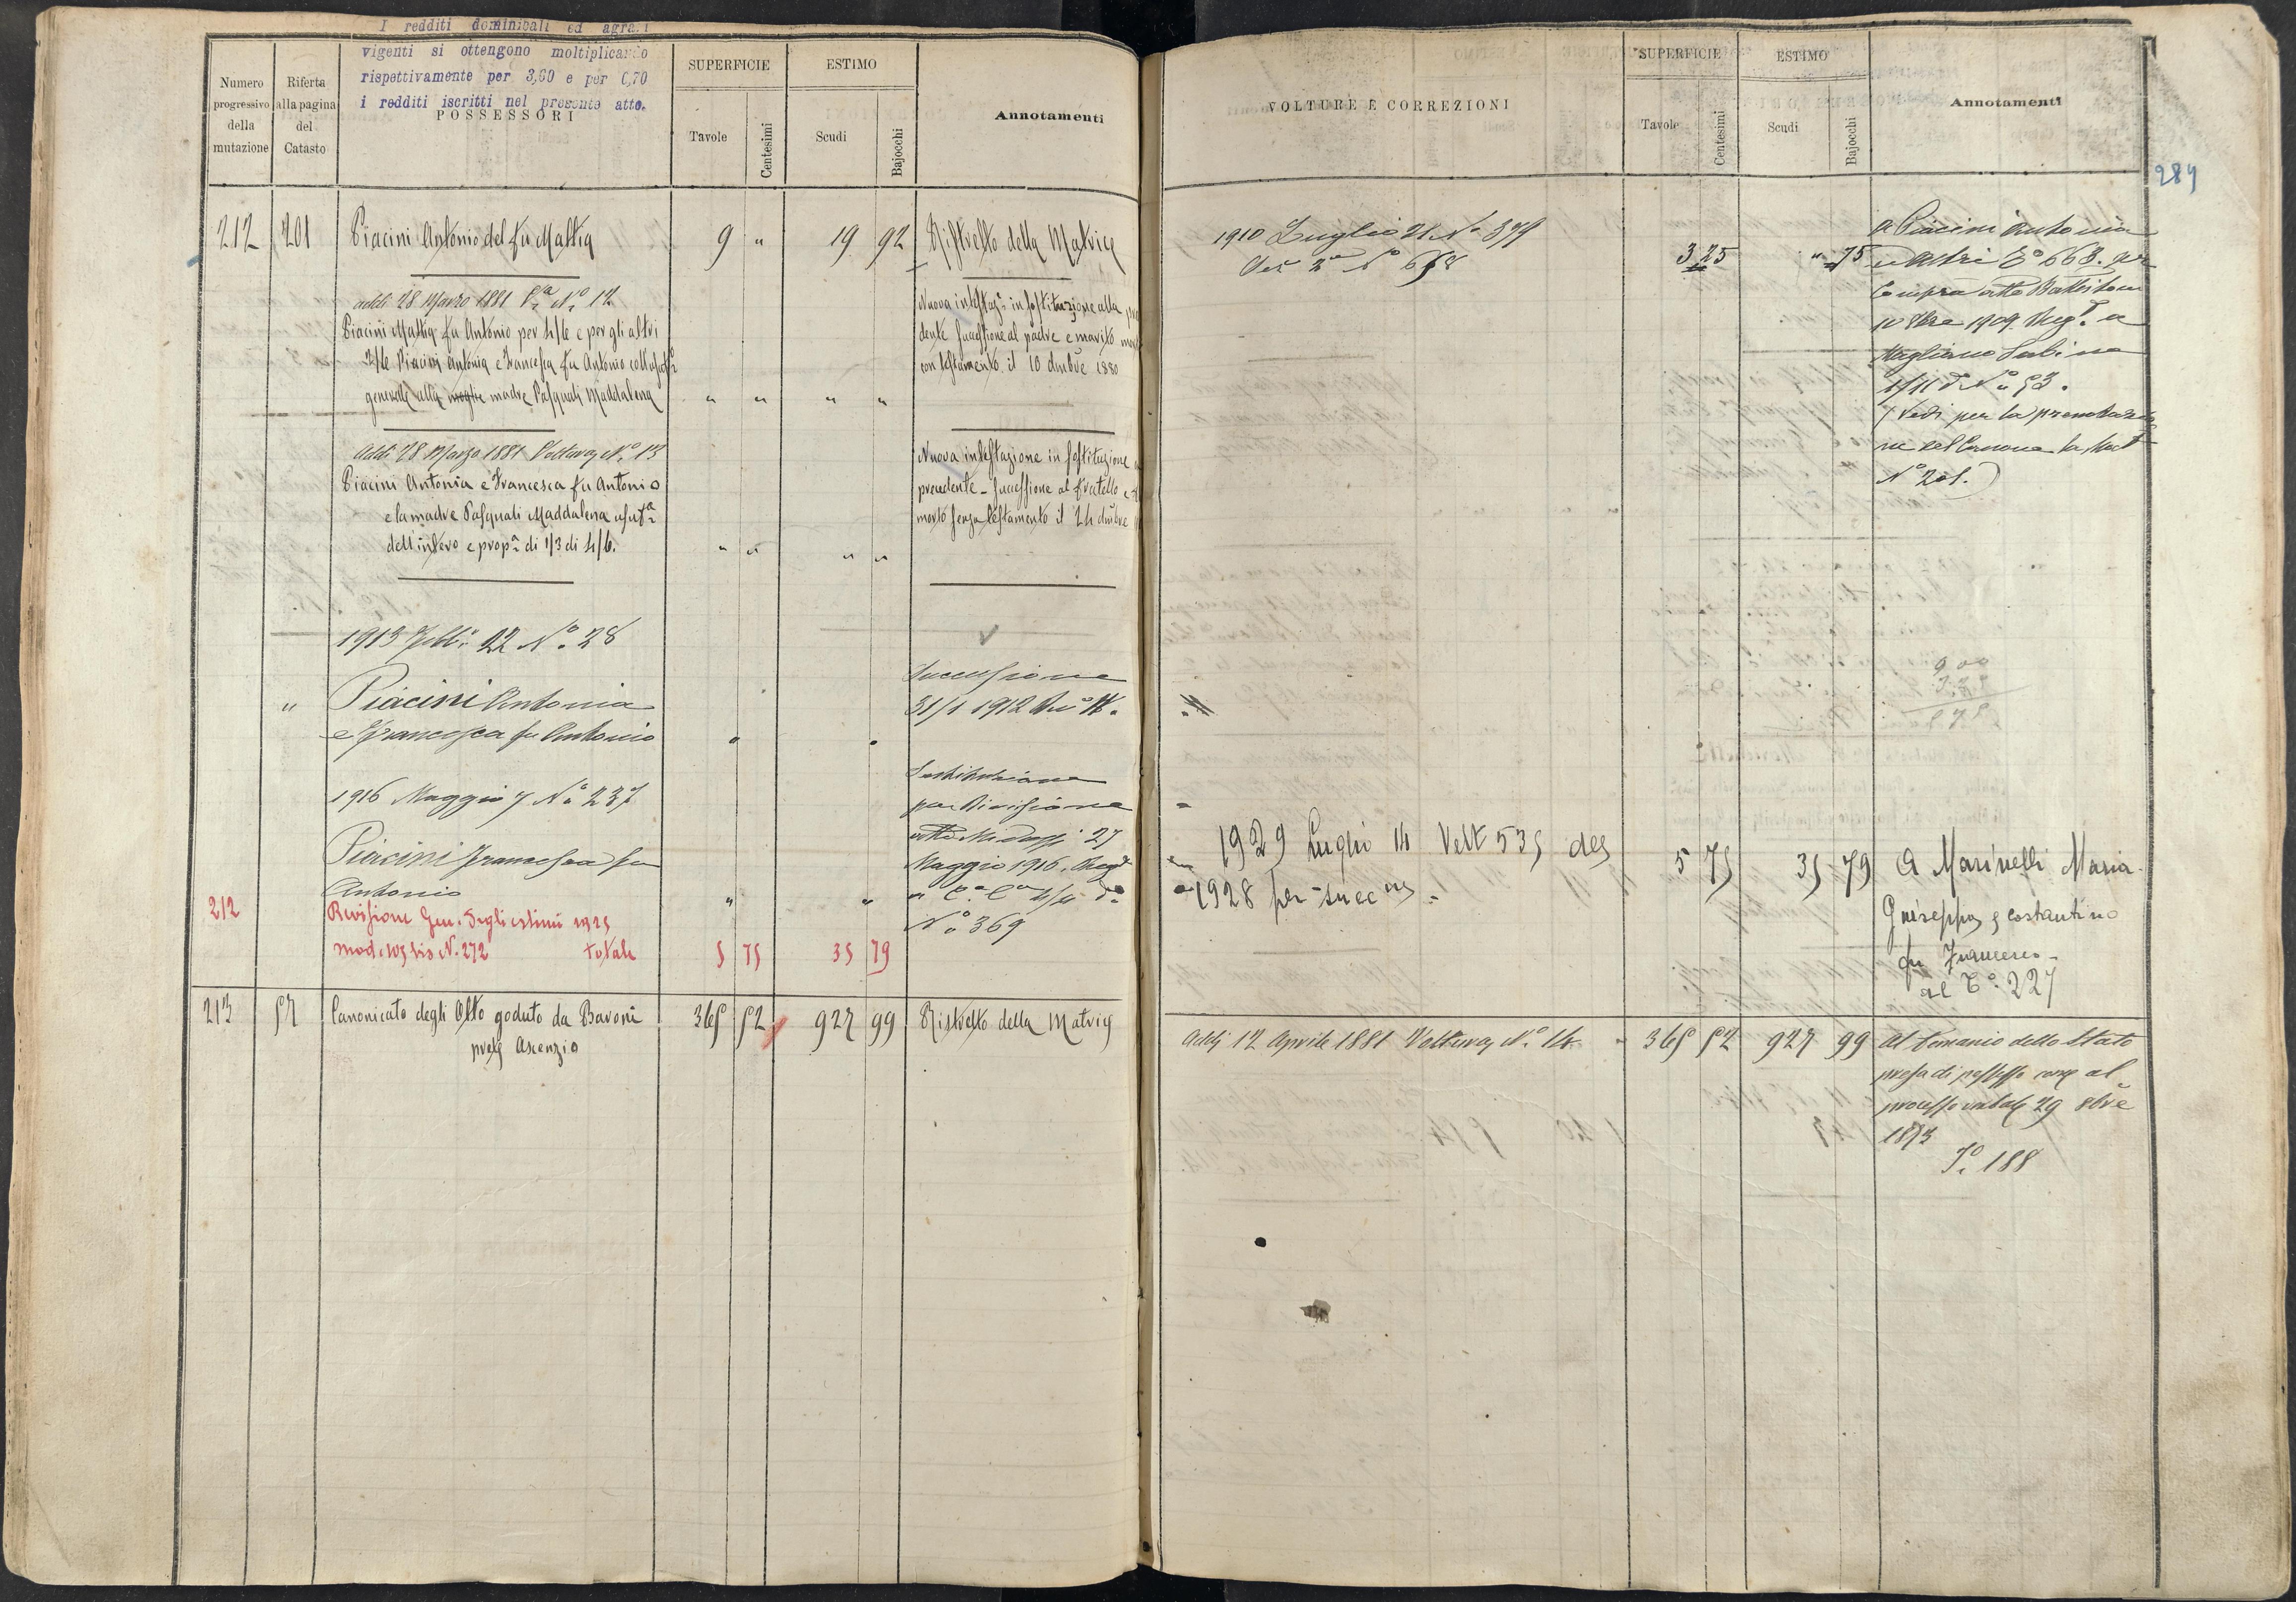 I redditi dominicali ed agrari
vigenti si ottengono moltiplicando
rispettivamente per 3,60 e per 0,70
i redditi iscritti nel presente atto.
Numero progressivo della mutazione
Riferta alla pagina del Catasto
POSSESSORI
SUPERFICIE
Tavole
Centesimi
ESTIMO
Scudi
Bajocchi
Annotamenti
212 201 Piacini Antonio del fu Mattia 9 " 19 92 Ristretto della Matrice
addi 28 Marzo 1881 Va No 12
Piacini Mattia fu Antonio per 4/6 e per gli altri
2/6 Piacini Antonia e Francesca fu Antonio coll'usuftto
generale alla moglie madre Pasquali Maddalena " " " "
Nuova intestaz. in sostituzione alla
dente successione al padre e marito
con testamento il 10 dmbre 1880
Addi 28 Marzo 1881 Voltura No 13
Piacini Antonia e Francesca fu Antonio
e la madre Pasquali Maddalena usufa
dell'intero e propa di 1/3 di 4/6. " " " "
Nuova intestazione in sostituzione
precedente - successione al fratello e
morto senza testamento il 24 dmbre
1913 Febb. 22 No 28
" Piacini Antonia
e Francesca fu Antonio
Successione
31/1 1912
1916 Maggio 7 No 237
Piacini Francesca fu
Antonio " "
Sostituzione
per Divisione
atto 27
Maggio 1916. Regto
No 369
212 Revisione Gen. degli estimi 1925
mod. bis N. 272 totale 5 75 35 79
213 57 Canonicato degli Otto goduto da Baroni 365 52 927 99 Ristretto della Matrice
prete Ascenzio
VOLTURE E CORREZIONI
SUPERFICIE
Tavole
Centesimi
ESTIMO
Scudi
Bajocchi
Annotamenti
289
1910 Luglio 21 No 379
No 668
3 25 " 75
a Piacini Antonia
ed Altri To 668. per
Compra atto Battistoni
10 1909. Regto a
Magliano Sabina
No 53.
(Vedi per la prenotazio
ne del Canone la Mat
No 201.)
9 00
3 25
5 75
1929 Luglio 14 Volt 535 del
1928 per succne.
5 75 35 79
A Marinelli Maria
Giuseppa e Costantino
fu Francesco
al To 227
Addi 12 Aprile 1881 Voltura No 14 365 52 927 99 Al Demanio dello Stato
presa di possesso come al
processo verbale 29 8bre
1873
To 188